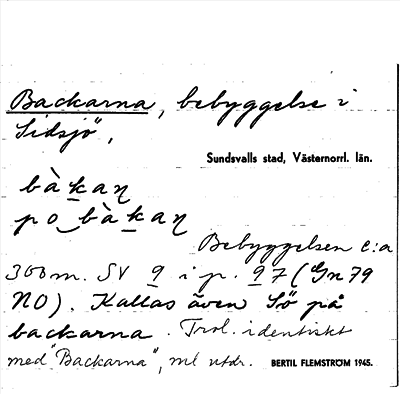 Backarna, bebyggelse i
Sidsjö,
Sundsvalls stad, Västernorrl. län.
bàkaɳ
po bàkaɳ
Bebyggelsen c:a
300 m. SV 9 i p. 97 (Gn 79
NO). Kallas även Sö på
backarna. Trol. identiskt
med "Backarna", ml utdr.
BERTIL FLEMSTRÖM 1945.